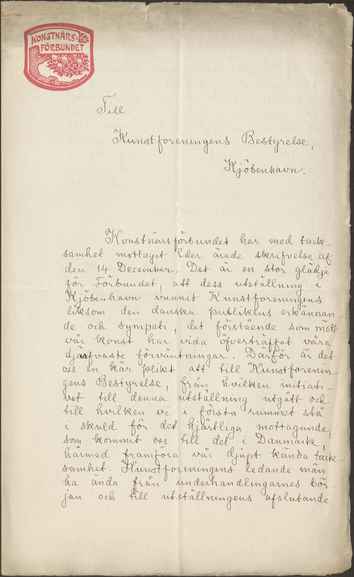 KONSTNÄRS-
FÖRBUNDET
Till
Kunstforeningens Bestyrelse,
Kjöbenhavn.
Konstnärsförbundet har med tack-
samhet mottagit Eder ärade skrifvelse af
den 14 December. Det är en stor glädje
för Förbundet, att dess utställning i
Kjöbenhavn vunnit Kunstforeningens
liksom den danska publikens erkännan-
de och sympati, det förstående som mött
vår konst har vida öfverträffat våra
djärfvaste förväntningar. Därför är det
oss en kär plikt att till Kunstforenin-
gens Bestyrelse, från hvilken initiati-
vet till denna utställning utgått och
till hvilken vi i första rummet stå
i skuld för det hjärtliga mottagande,
som kommit oss till del i Danmark,
härmed framföra vår djupt kända tack-
samhet. Kunstforeningens ledande män
ha ända från underhandlingarnes bör-
jan och till utställningens afslutande